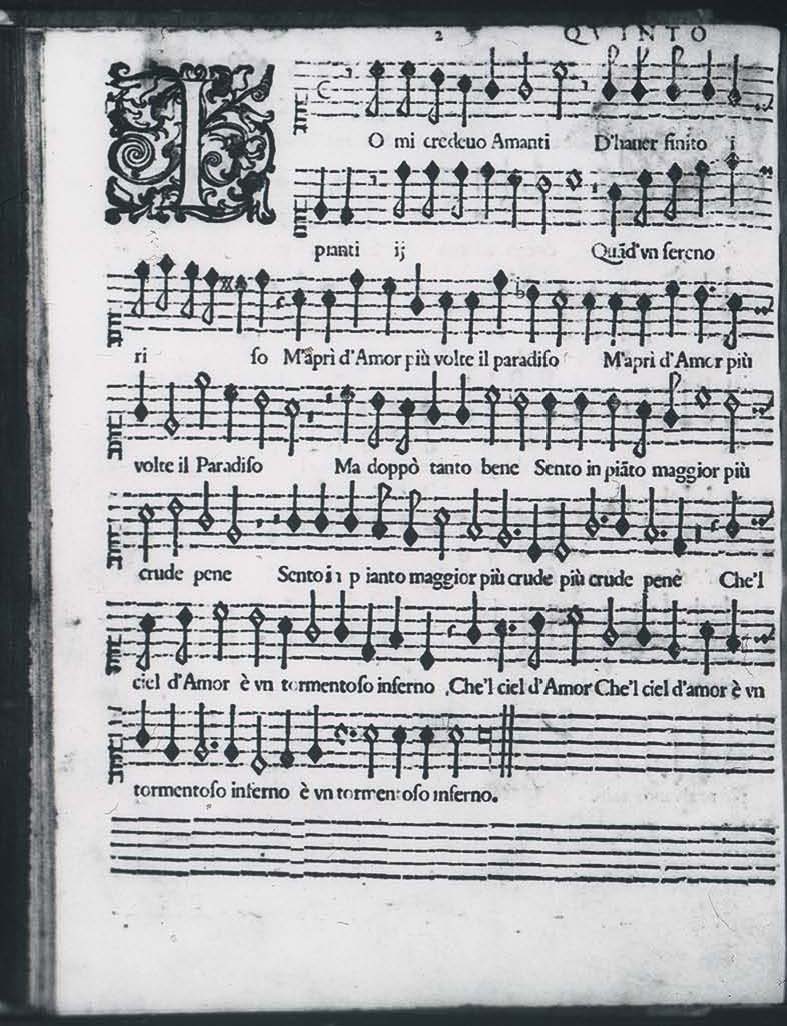 2 QVINTO
I
O mi credeuo Amanti D'hauer finito i
pianti ij Quãd'vn sereno
ri so M'apri d'Amor più volte il paradiso M'apri d'Amor più
volte il Paradiso Ma doppò tanto bene Sento in piãto maggior più
crude pene Sento in p ianto maggior più crude più crude pene Che'l
ciel d'Amor è vn tormentoso inferno Che'l ciel d'Amor Che'l ciel d'amor è vn
tormentoso inferno è vn tormentoso inferno.